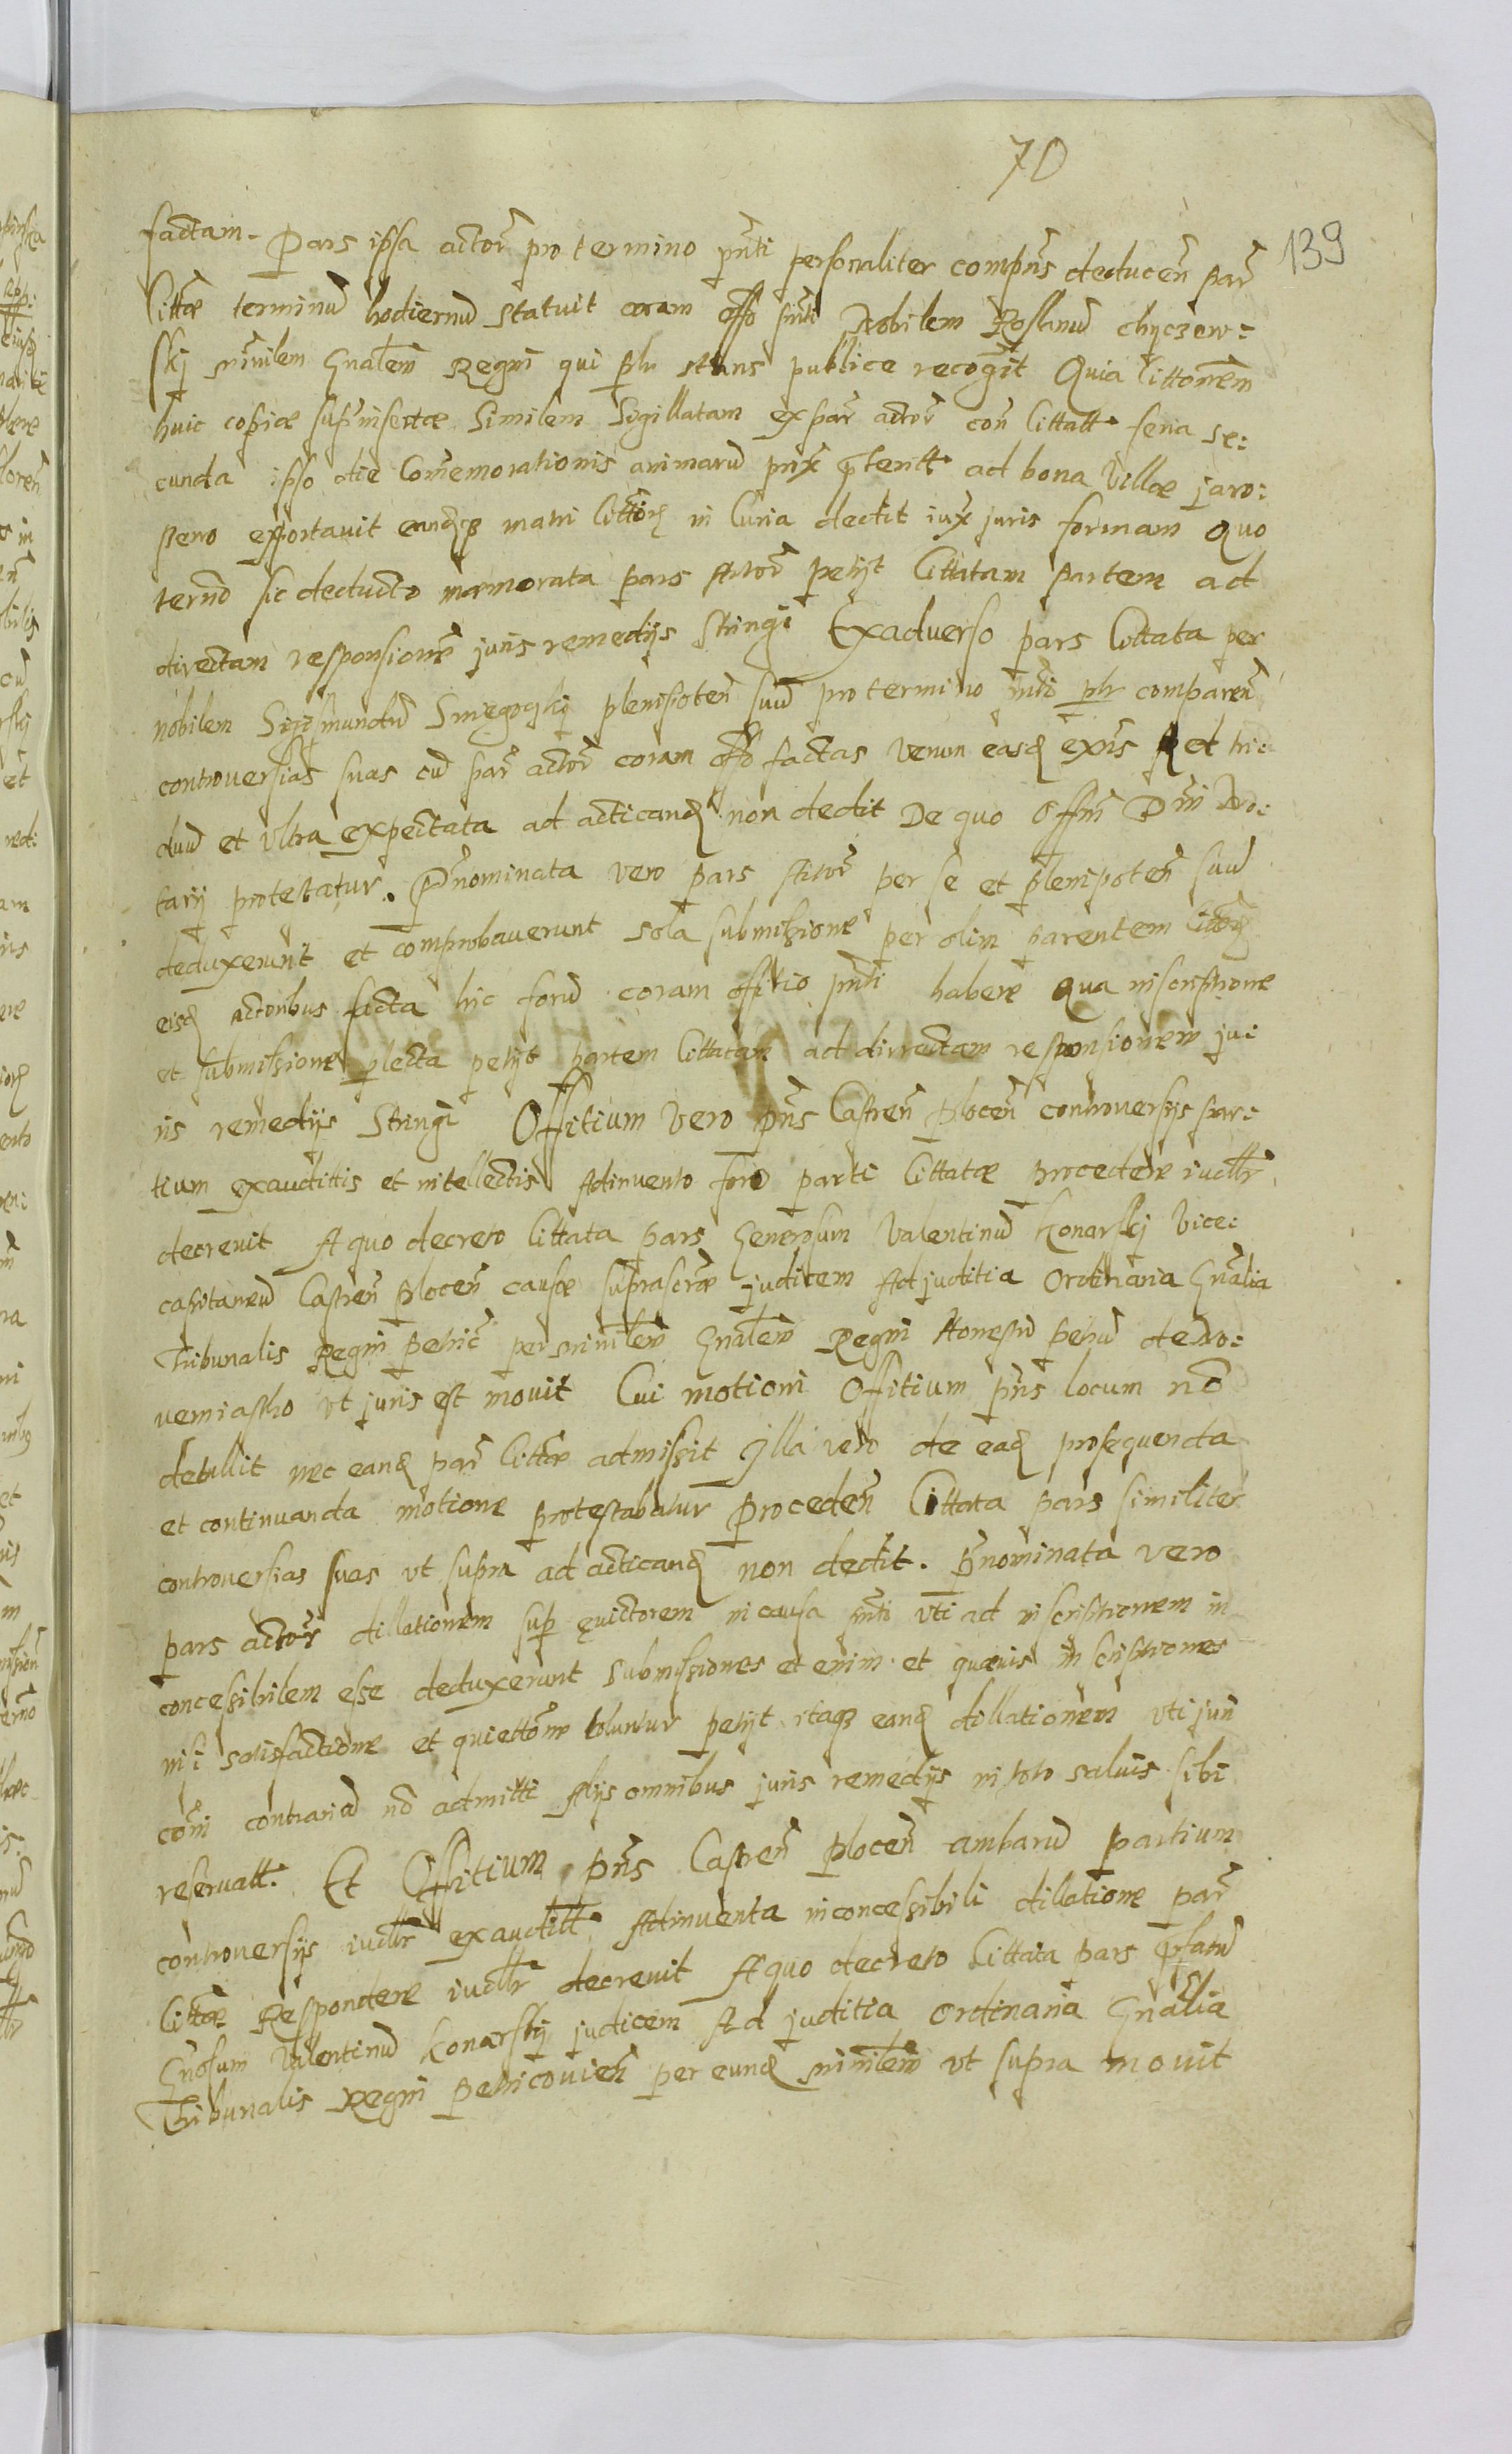 70
139
factam. Pars ipsa actor̃ pro termino pñti personaliter compñs deducen̄ par̃
Cittæ terminū hodiernū statuit coram offo pñti Nobilem Roslanū chyczew:
skj minilem Gnãlem Regni qui phr stans publice recog̃it Quia Cittoñem
huic copiæ supinsertæ Similem Sigillatam ex par̃ actor̃ con̄ Cittatt. feria se:
cunda ipso die Comemorationis animarū prox̃ p̃teritt. ad bona Villæ jaro:
szewo exportavit eandq matri Cittor̃ in Curia dedit iux̃ juris formam Quo
termō sic deducto memorata pars Actor̃ petijt Cittatam Partem ad
directam responsionē juris remedijs Stringi Exaduerso pars Cittata per
nobilem Sigismundū Smiegockj plenipoten̄ suū pro termino pñti phr comparen̄
controuersias suas cū par̃ actor̃ coram offo factas Verum easd exñs et tri
duū et vltra expectata ad acticand non dedit De quo Offm̃ Dñi No:
tarij protestatur. P̃nominata vero pars Actor̃ per se et plenipoten̄ suū
deduxerunt et comprobauerunt sola submissione per olim parentem Cittor̃
eisd actoribus facta hic forū coram offitio pñti habere Qua inscriptione
et submissione plecta petijt partem Cittatam ad dirrectam responsionem ju:
ris remedijs Stringi Offitium Vero pñs Castren̄ Plocen̄ controuersijs par:
tium exaudittis et intellectis Adinuento foro parti Cittatæ procedere iudtr̃
decreuit A quo decreto Cittata pars Generosum Valentinū Konarskj Vice:
capitaneū Castren̄ Plocen̄ causæ suprascræ judicem Ad juditia Ordinaria Gnãlia
Tribunalis Regni Petric̃ per minilem Gnãlem Regni Honestū Petrū de No:
uemiastho vt juris est mouit Cui motioni Offitium pñs locum nō
detullit nec eand par̃ Cittæ admissit Illa vero de ead prosequenda
et continuanda motione protestabatur Proceden̄ Cittata pars similiter
controuersias suas vt supra ad acticand non dedit. P̃nominata vero
pars actor̃ dillationem sup euictorem in causa pñti vti ad inscriptionem in
concessibilem esse deduxerunt Submissiones et enim et quæuis inscriptiones
nisi satisfactione et quiettone toluntur petijt itaq eand dillationem vti juri
cōm̃ contrariā nō admitti Alijs omnibus juris remedijs in toto saluis sibi
reseruatt. Et Offitium pñs Castren̄ Plocen̄ ambarū partium
controuersijs iudtr̃ exauditt. Adinuenta inconcessibili dillatione par̃
Cittæ Respondere iudtr̃ decreuit A quo decreto Cittata pars p̃fatū
Gnõsum Valentinū Konarskj judicem Ad juditia Ordinaria Gnãlia
Tribunalis Regni Petricouien̄ per eund minilem vt supra mouit